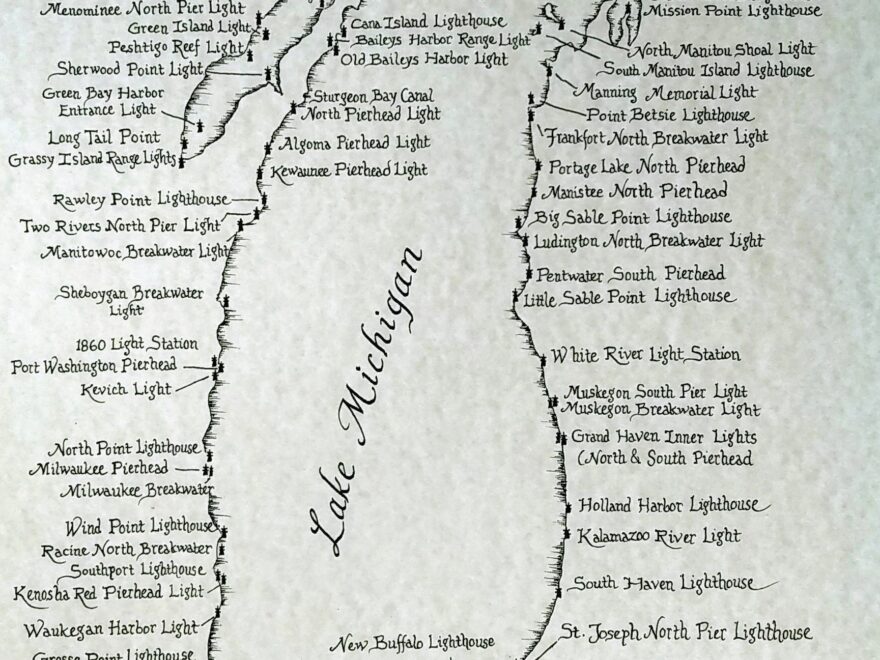 Menominee North Pier Light
Green Island Light
Peshtigo Reef Light
Sherwood Point Light
Green Bay Harbor
Entrance Light
Long Tail Point
Grassy Island Range Lights
Rawley Point Lighthouse
Two Rivers North Pier Light
Manitowoc Breakwater Light
Sheboygan Breakwater
Light
1860 Light Station
Port Washington Pierhead
Kevich Light
North Point Lighthouse
Milwaukee Pierhead
Milwaukee Breakwater
Wind Point Lighthouse
Racine North Breakwater
Southport Lighthouse
Kenosha Red Pierhead Light
Waukegan Harbor Light
Grosse Point Lighthouse
Cana Island Lighthouse
Baileys Harbor Range Light
Old Baileys Harbor Light
Sturgeon Bay Canal
North Pierhead Light
Algoma Pierhead Light
Kewaunee Pierhead Light
Lake Michigan
New Buffalo Lighthouse
Mission Point Lighthouse
North Manitou Shoal Light
South Manitou Island Lighthouse
Manning Memorial Light
Point Betsie Lighthouse
Frankfort North Breakwater Light
Portage Lake North Pierhead
Manistee North Pierhead
Big Sable Point Lighthouse
Ludington North Breakwater Light
Pentwater South Pierhead
Little Sable Point Lighthouse
White River Light Station
Muskegon South Pier Light
Muskegon Breakwater Light
Grand Haven Inner Lights
(North & South Pierhead
Holland Harbor Lighthouse
Kalamazoo River Light
South Haven Lighthouse
St. Joseph North Pier Lighthouse